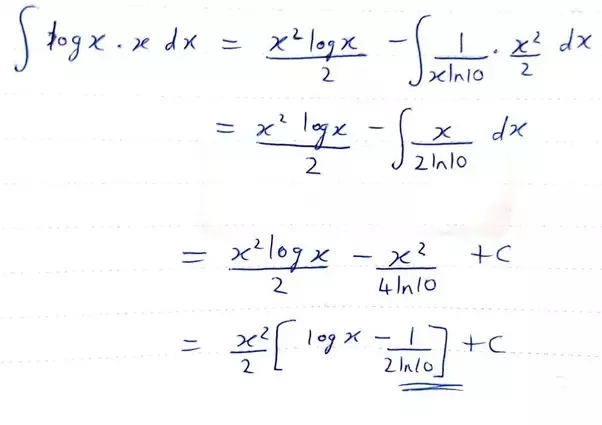 ∫ log x · x dx = x² log x / 2 − ∫ 1 / (x ln 10) · x² / 2 dx
= x² log x / 2 − ∫ x / (2 ln 10) dx
= x² log x / 2 − x² / (4 ln 10) + C
= x² / 2 [ log x − 1 / (2 ln 10) ] + C